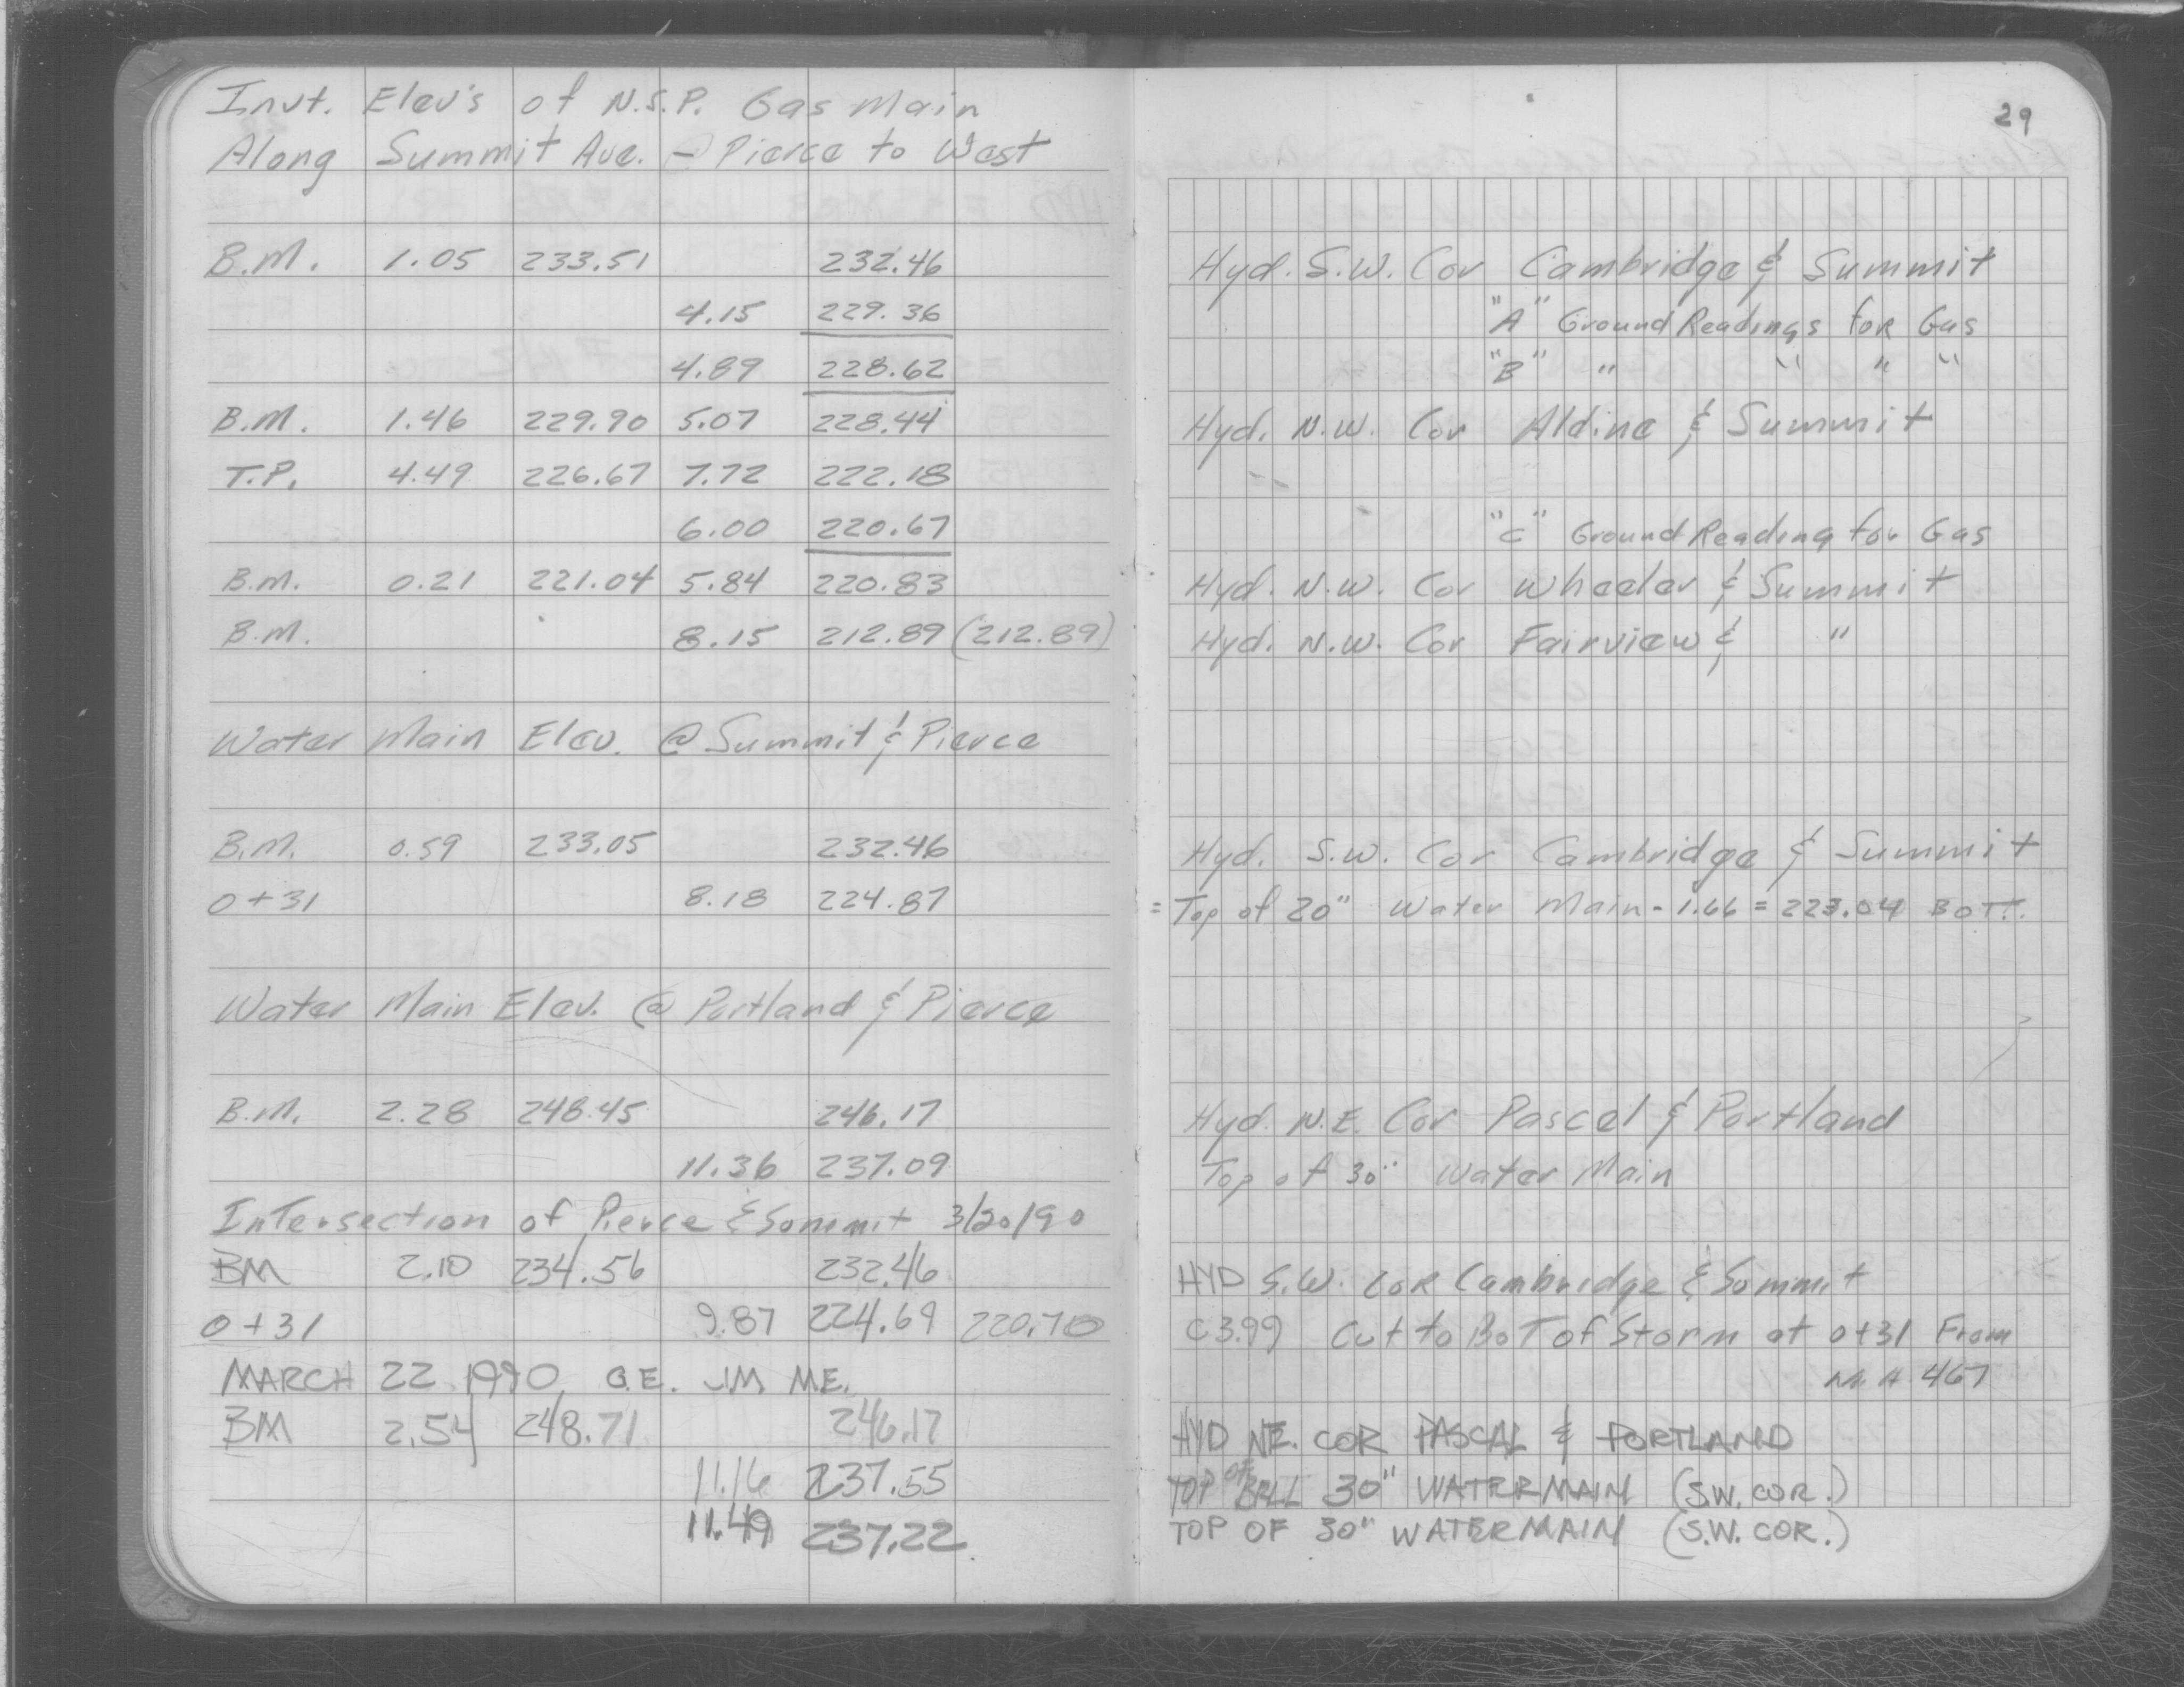 29
Invt. Elev's of N.S.P. Gas Main
Along Summit Ave. - Pierce to West
B.M. 1.05 233.51 232.46 Hyd. S.W. Cor Cambridge & Summit
4.15 229.36 "A" Ground Readings for Gas
4.89 228.62 "B" " " " "
B.M. 1.46 229.90 5.07 228.44 Hyd. N.W. Cor Aldine & Summit
T.P. 4.49 226.67 7.72 222.18
6.00 220.67 "C" Ground Reading for Gas
B.M. 0.21 221.04 5.84 220.83 Hyd. N.W. Cor Wheeler & Summit
B.M. 8.15 212.89 (212.89) Hyd. N.W. Cor Fairview & "
Water Main Elev. @ Summit & Pierce
B.M. 0.59 233.05 232.46 Hyd. S.W. Cor Cambridge & Summit
0+31 8.18 224.87 = Top of 20" Water Main - 1.66 = 223.04 BOTT.
Water Main Elev. @ Portland & Pierce
B.M. 2.28 248.45 246.17 Hyd. N.E. Cor Pascel & Portland
11.36 237.09 Top of 30" Water Main
Intersection of Pierce & Sommit 3/20/90
BM 2.10 234.56 232.46 HYD S.W. COR Cambridge & Sommit
0+31 9.87 224.69 220.70 C 3.99 Cut to BOT of Storm at 0+31 From
M.H 467
MARCH 22 1990 G.E. JM M.E.
BM 2.54 248.71 246.17 HYD NE. COR PASCAL & PORTLAND
11.16 237.55 TOP of BELL 30" WATERMAIN (S.W. COR.)
11.49 237.22 TOP OF 30" WATERMAIN (S.W. COR.)